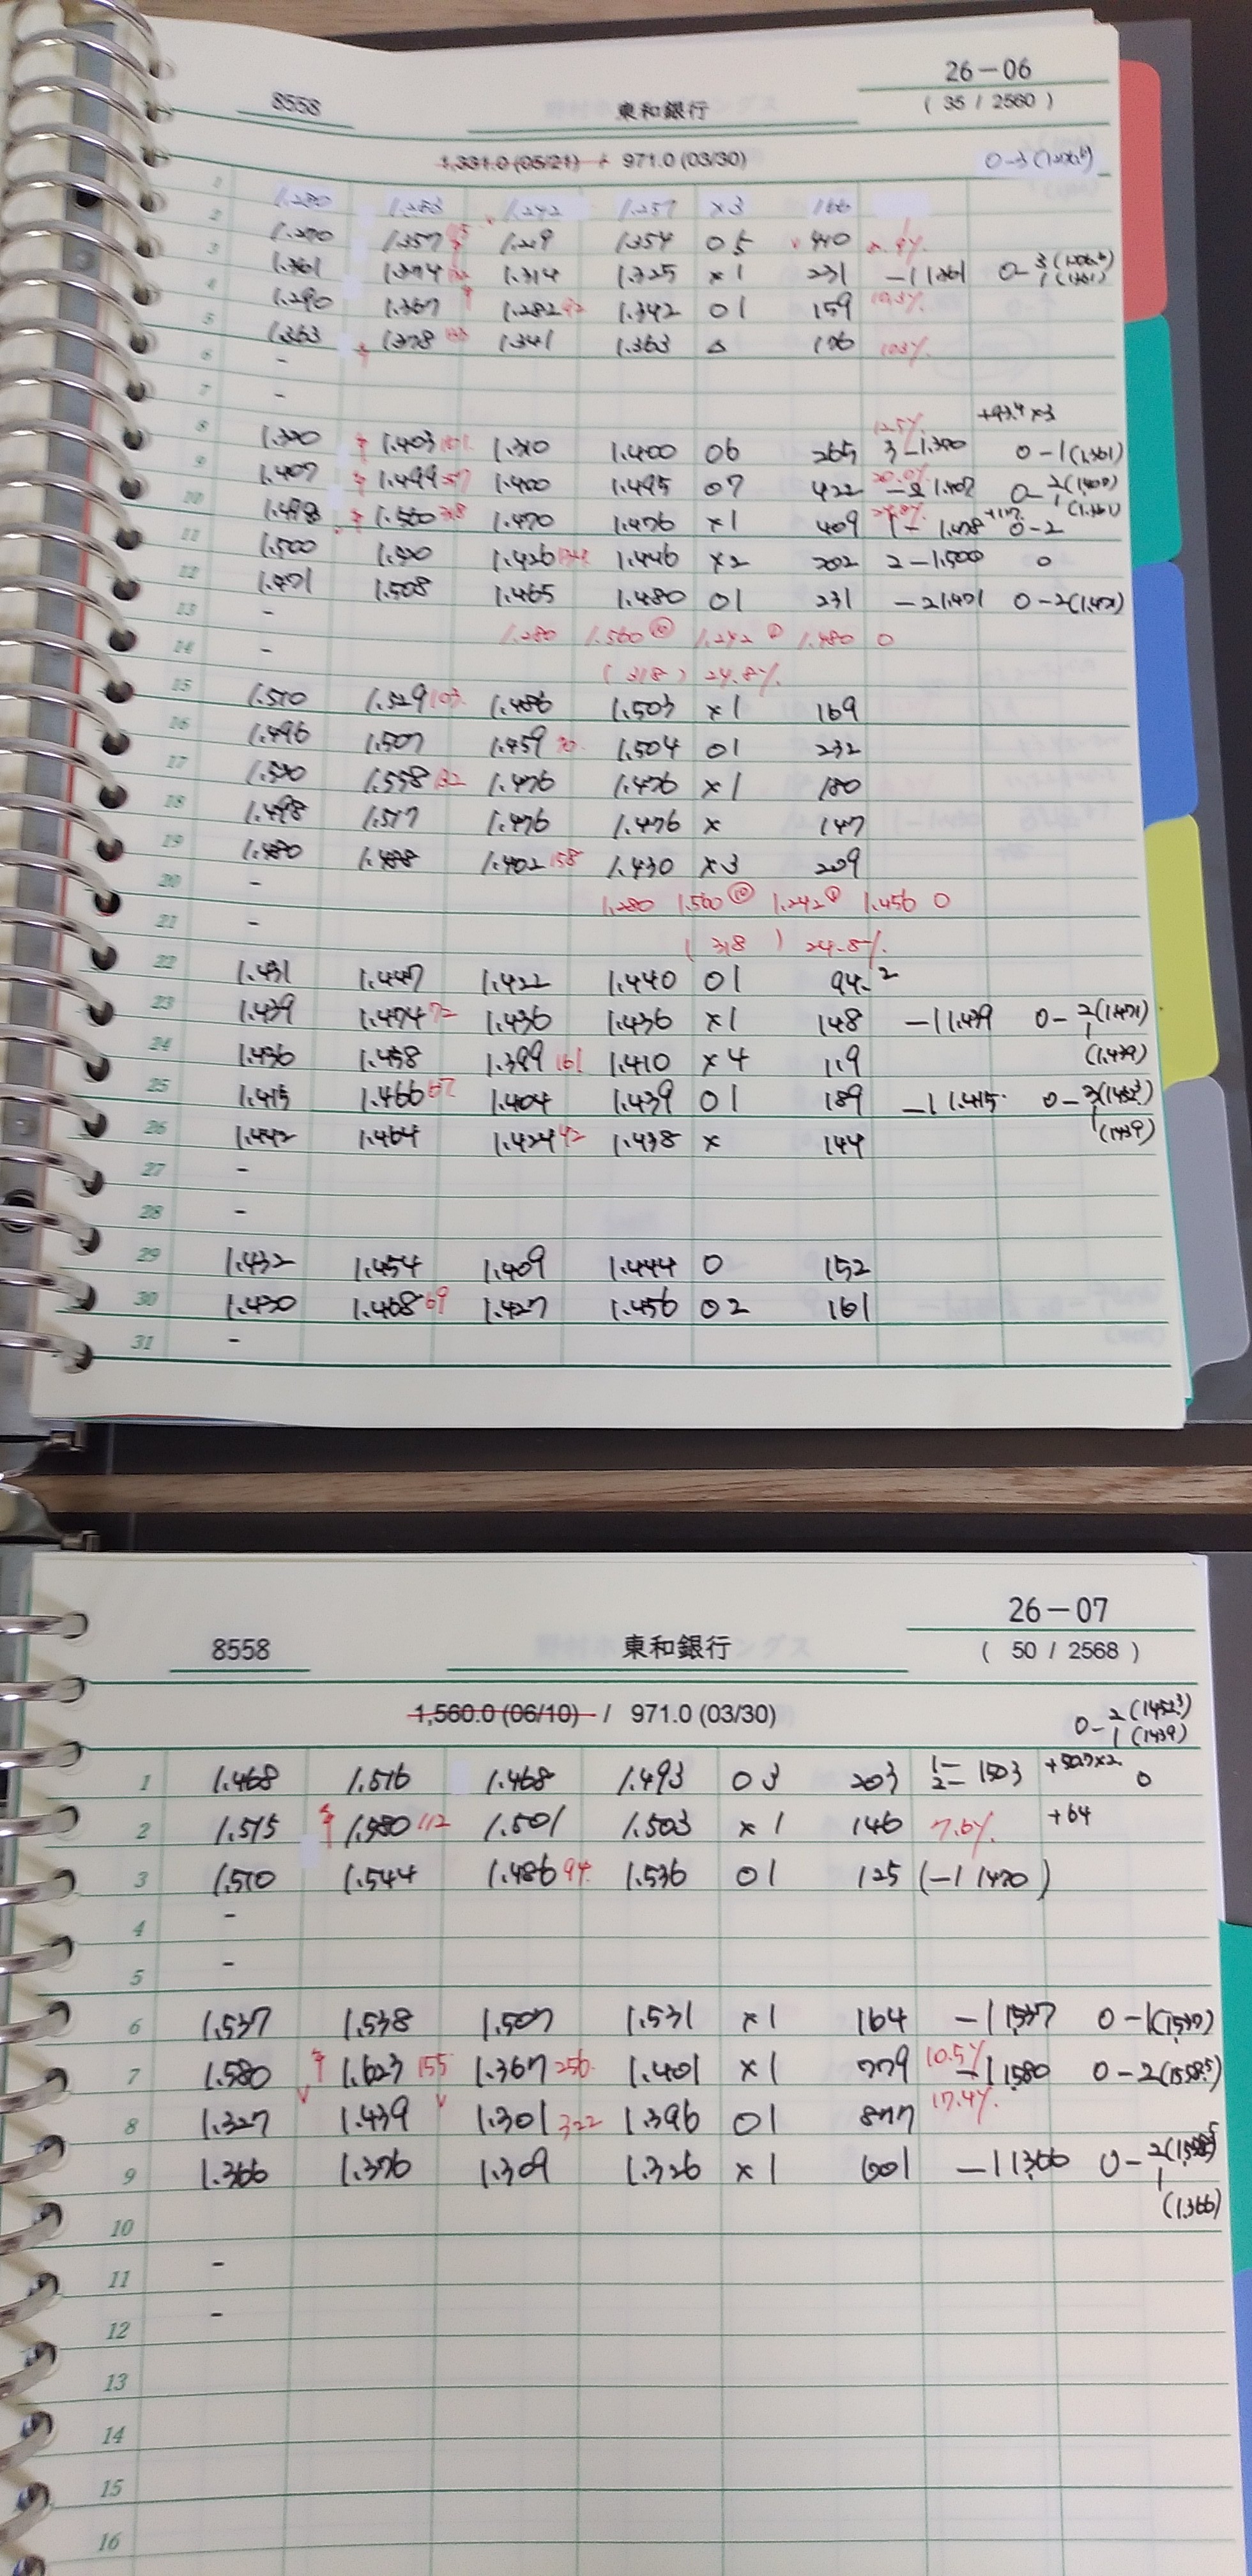 26-06
8558 東和銀行 ( 35 / 2560 )
1,331.0 (05/21) / 971.0 (03/30) 0-3
1 1.280 1.283 1.242 1.257 ×3 166
2 1.270 1.357 1.219 1.354 05 440
3 1.361 1.374 1.314 1.325 ×1 231 -1 1361
4 1.290 1.367 1.282 92 1.342 01 159
5 1.363 1.378 1.341 1.363 △ 176 10.3%
6 -
7 -
+93.4×3
8 1.320 1.403 161 1.310 1.400 06 265 12.5% 3-1.390 0-1(1.361)
9 1.407 1.499 257 1.400 1.495 07 422 20.0% -2 1.407
10 1.498 1.560 318 1.470 1.476 ×1 409 24.8% 1- 1.478 0-2
11 1.500 1.520 1.426 134 1.446 ×2 202 2-1.500 0
12 1.471 1.508 1.465 1.480 01 231 -2 1.471 0-2(1.471)
13 -
1.280 1.560 ⑩ 1.242 ① 1.480 0
14 -
( 318 ) 24.8%
15 1.510 1.529 103 1.486 1.503 ×1 169
16 1.496 1.507 1.459 70 1.504 01 232
17 1.520 1.558 132 1.476 1.476 ×1 180
18 1.498 1.517 1.476 1.476 × 147
19 1.480 1.488 1.402 158 1.430 ×3 209
20 -
1.280 1.560 ⑩ 1.242 ① 1.456 0
21 -
( 318 ) 24.8%
22 1.431 1.447 1.422 1.440 01 94.2
23 1.439 1.474 72 1.436 1.436 ×1 148 -1 1.439 0-2(1.471)
24 1.456 1.458 1.399 161 1.410 ×4 119 1(1.439)
25 1.415 1.466 67 1.404 1.439 01 189 -1 1.415
26 1.442 1.464 1.424 42 1.438 × 144 1(1439)
27 -
28 -
29 1.432 1.454 1.409 1.444 0 152
30 1.430 1.468 69 1.427 1.456 02 161
31 -
26-07
8558 東和銀行 ( 50 / 2568 )
1,560.0 (06/10) / 971.0 (03/30) 0-2(1452.3)
1 (1439)
1 1.468 1.516 1.468 1.493 03 203 1- 2- 1503 +50.7×2 0
2 1.515 1.580 112 1.501 1.503 ×1 146 7.6% +64
3 1.510 1.544 1.486 94 1.536 01 125 (-1 1470 )
4 -
5 -
6 1.537 1.538 1.507 1.531 ×1 164 -1 1537 0-1(1537)
7 1.580 1.623 155 1.367 256 1.401 ×1 779 10.5% -1 1580 0-2(1558.5)
8 1.327 1.439 1.301 322 1.396 01 877 17.4%
9 1.366 1.376 1.309 1.326 ×1 601 -1 1366 0-2(1558.5)
1
(1.366)
10
11 -
12 -
13
14
15
16